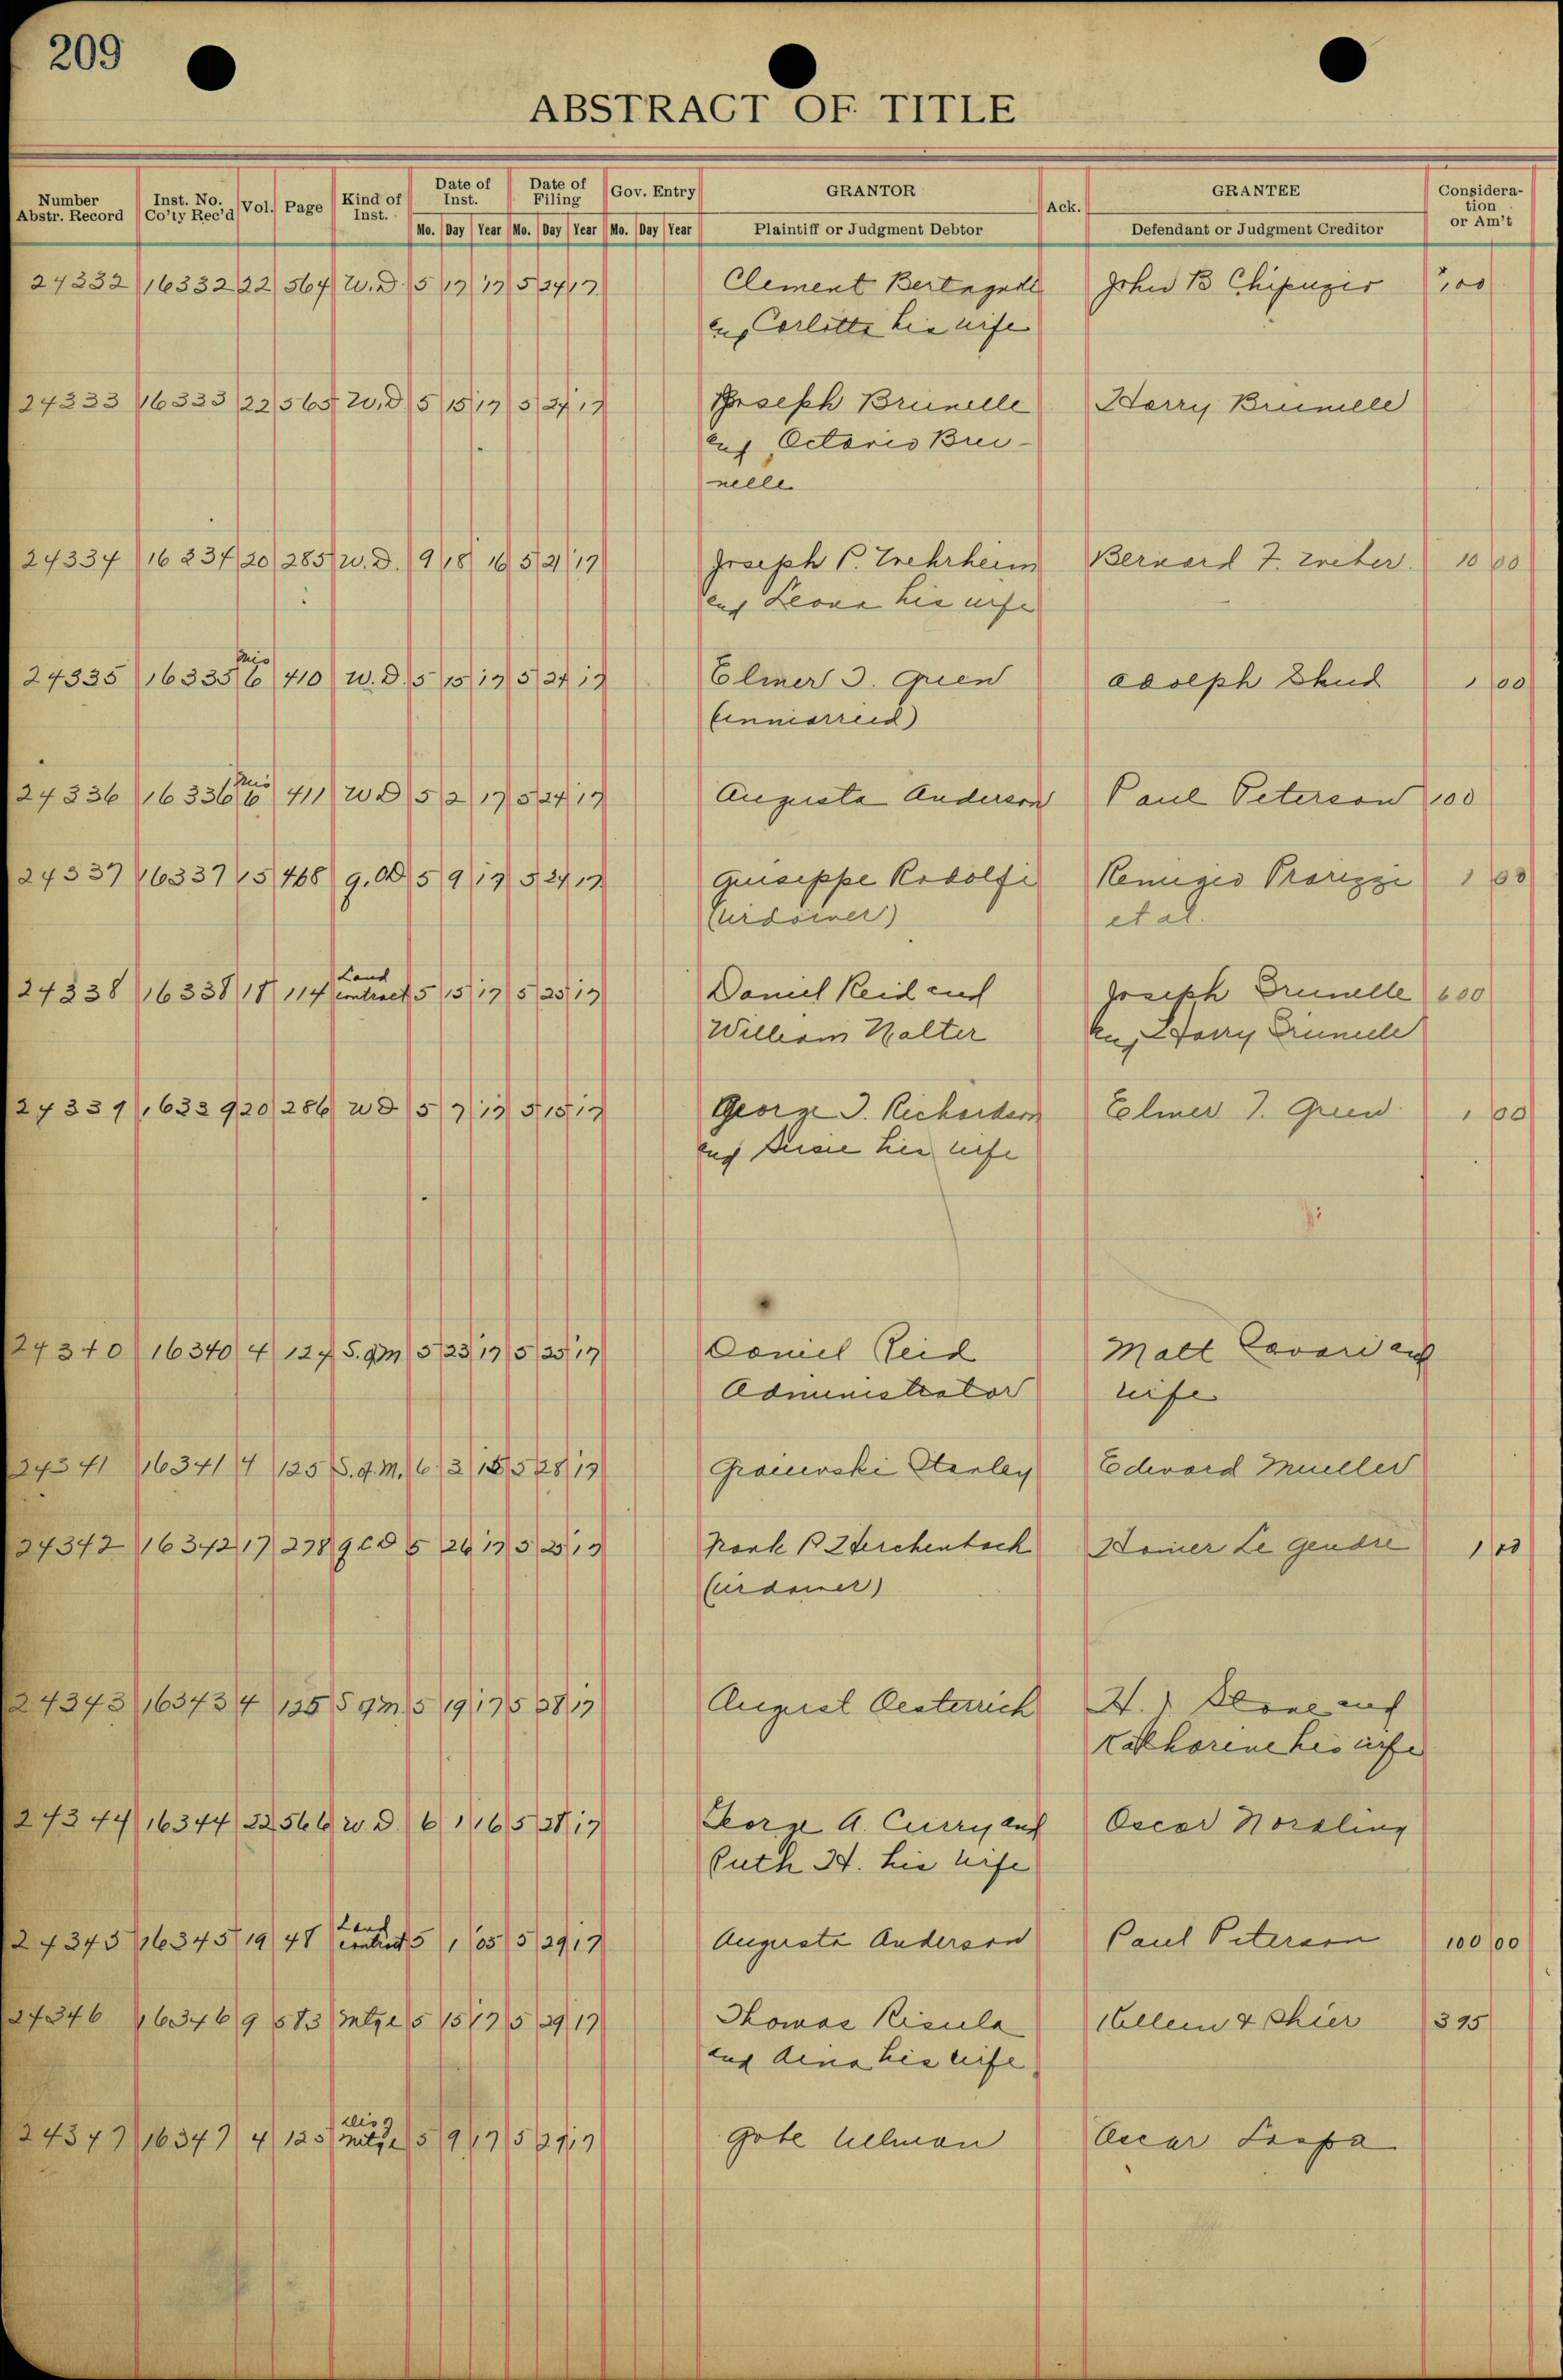 209
ABSTRACT OF TITLE
Number Abstr. Record | Inst. No. Co'ty Rec'd | Vol. | Page | Kind of Inst. | Date of Inst. Mo. Day Year | Date of Filing Mo. Day Year | Gov. Entry Mo. Day Year | GRANTOR Plaintiff or Judgment Debtor | Ack. | GRANTEE Defendant or Judgment Creditor | Consideration or Am't
24332 16332 22 564 W.D. 5 17 17 5 24 17 Clement John B 1,00
and Carlotta his wife
24333 16333 22 565 W.D 5 15 17 5 24 17 Joseph Brunelle Harry Brunelle
and Octavio Bru-
nelle
24334 16334 20 285 W.D. 9 18 16 5 21 17 Joseph P. Bernard F. 10 00
and Leona his wife
24335 16335 Mis 6 410 W.D. 5 15 17 5 24 17 Elmer J. Green Adolph 1 00
(unmarried)
24336 16336 Mis 6 411 W D 5 2 17 5 24 17 Augusta Anderson Paul Peterson 100
24337 16337 15 468 5 9 17 5 24 17 Guiseppe Rodolfi Remigio 1 00
(widower) et al.
24338 16338 18 114 Land contract 5 15 17 5 25 17 Daniel Reid and Joseph Brunelle 600
William Walter and Harry Brunelle
24339 16339 20 286 W D 5 7 17 5 15 17 George J. Richardson Elmer J. Green 1 00
and Susie his wife
24340 16340 4 124 S. of M 5 23 17 5 25 17 Daniel Reid Matt Lavari and
Administrator wife
24341 16341 4 125 S. of M. 6 2 15 5 28 17 Stanley Edward Mueller
24342 16342 17 278 Q C D 5 26 17 5 25 17 Frank B Herchenbach Homer Le Gendre 1 00
(widower)
24343 16343 4 125 S of M 5 19 17 5 28 17 August Oesterrich H. J. Stone and
Katherine his wife
24344 16344 22 566 W.D. 6 1 16 5 28 17 George A. Curry and Oscar Nordling
Ruth H. his wife
24345 16345 19 48 Land contract 5 1 05 5 29 17 Augusta Anderson Paul Peterson 100 00
24346 16346 9 583 Mtge 5 15 17 5 29 17 Thomas Risula 395
and Aina his wife
24347 16347 4 125 Disg Mtge 5 9 17 5 29 17 Oscar